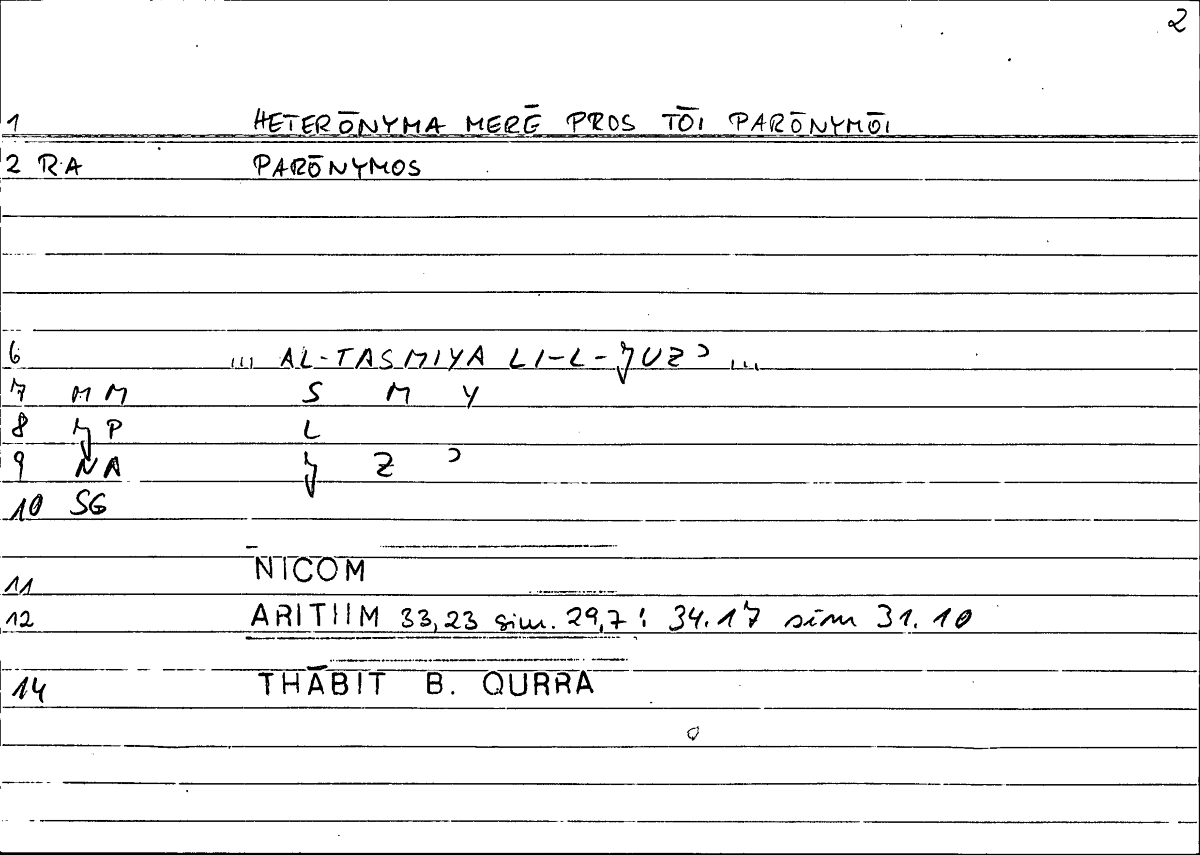 2
1 HETERŌNYMA MERĒ PROS TŌI PARŌNYMŌI
2 RA PARŌNYMOS
6 ... AL-TASMIYA LI-L-JUZʾ ...
7 MM S M Y
8 JP L
9 NA J Z ʾ
10 SG
11 NICOM
12 ARITHM 33,23 sim. 29,7 : 34.17 sim 31.10
14 THĀBIT B. QURRA